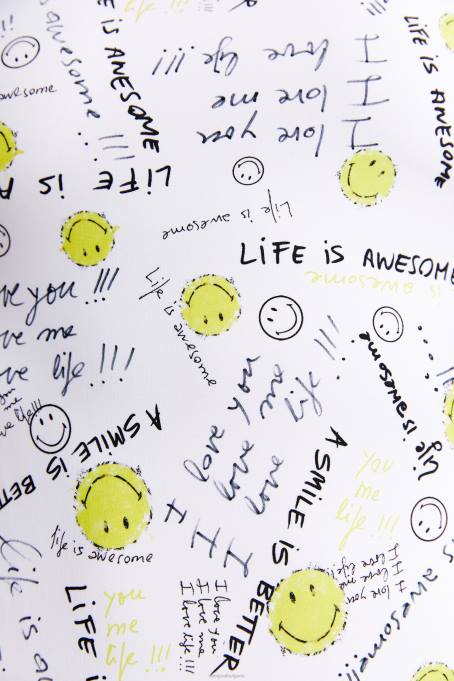 LIFE IS AWESOME
awesome !!!
LIFE IS AWESOME
awesome
I love you
I love me
I love life !!!
LIFE IS A
Life is awesome
LIFE IS AWESOME
is awesome
ve you !!!
ve me
ve life !!!
Life is awesome
I love you
I love me
I love life !!!
life is awesome
me
ve life!!!
A SMILE IS BETTE
A SMILE IS BETTER
you
me
life !!!
life is awesome
I love you
I love me
I love life!!!
Life is a
LIFE I
you
me
life !!!
I love you
I love me
I love life !!!
is awesome!!!